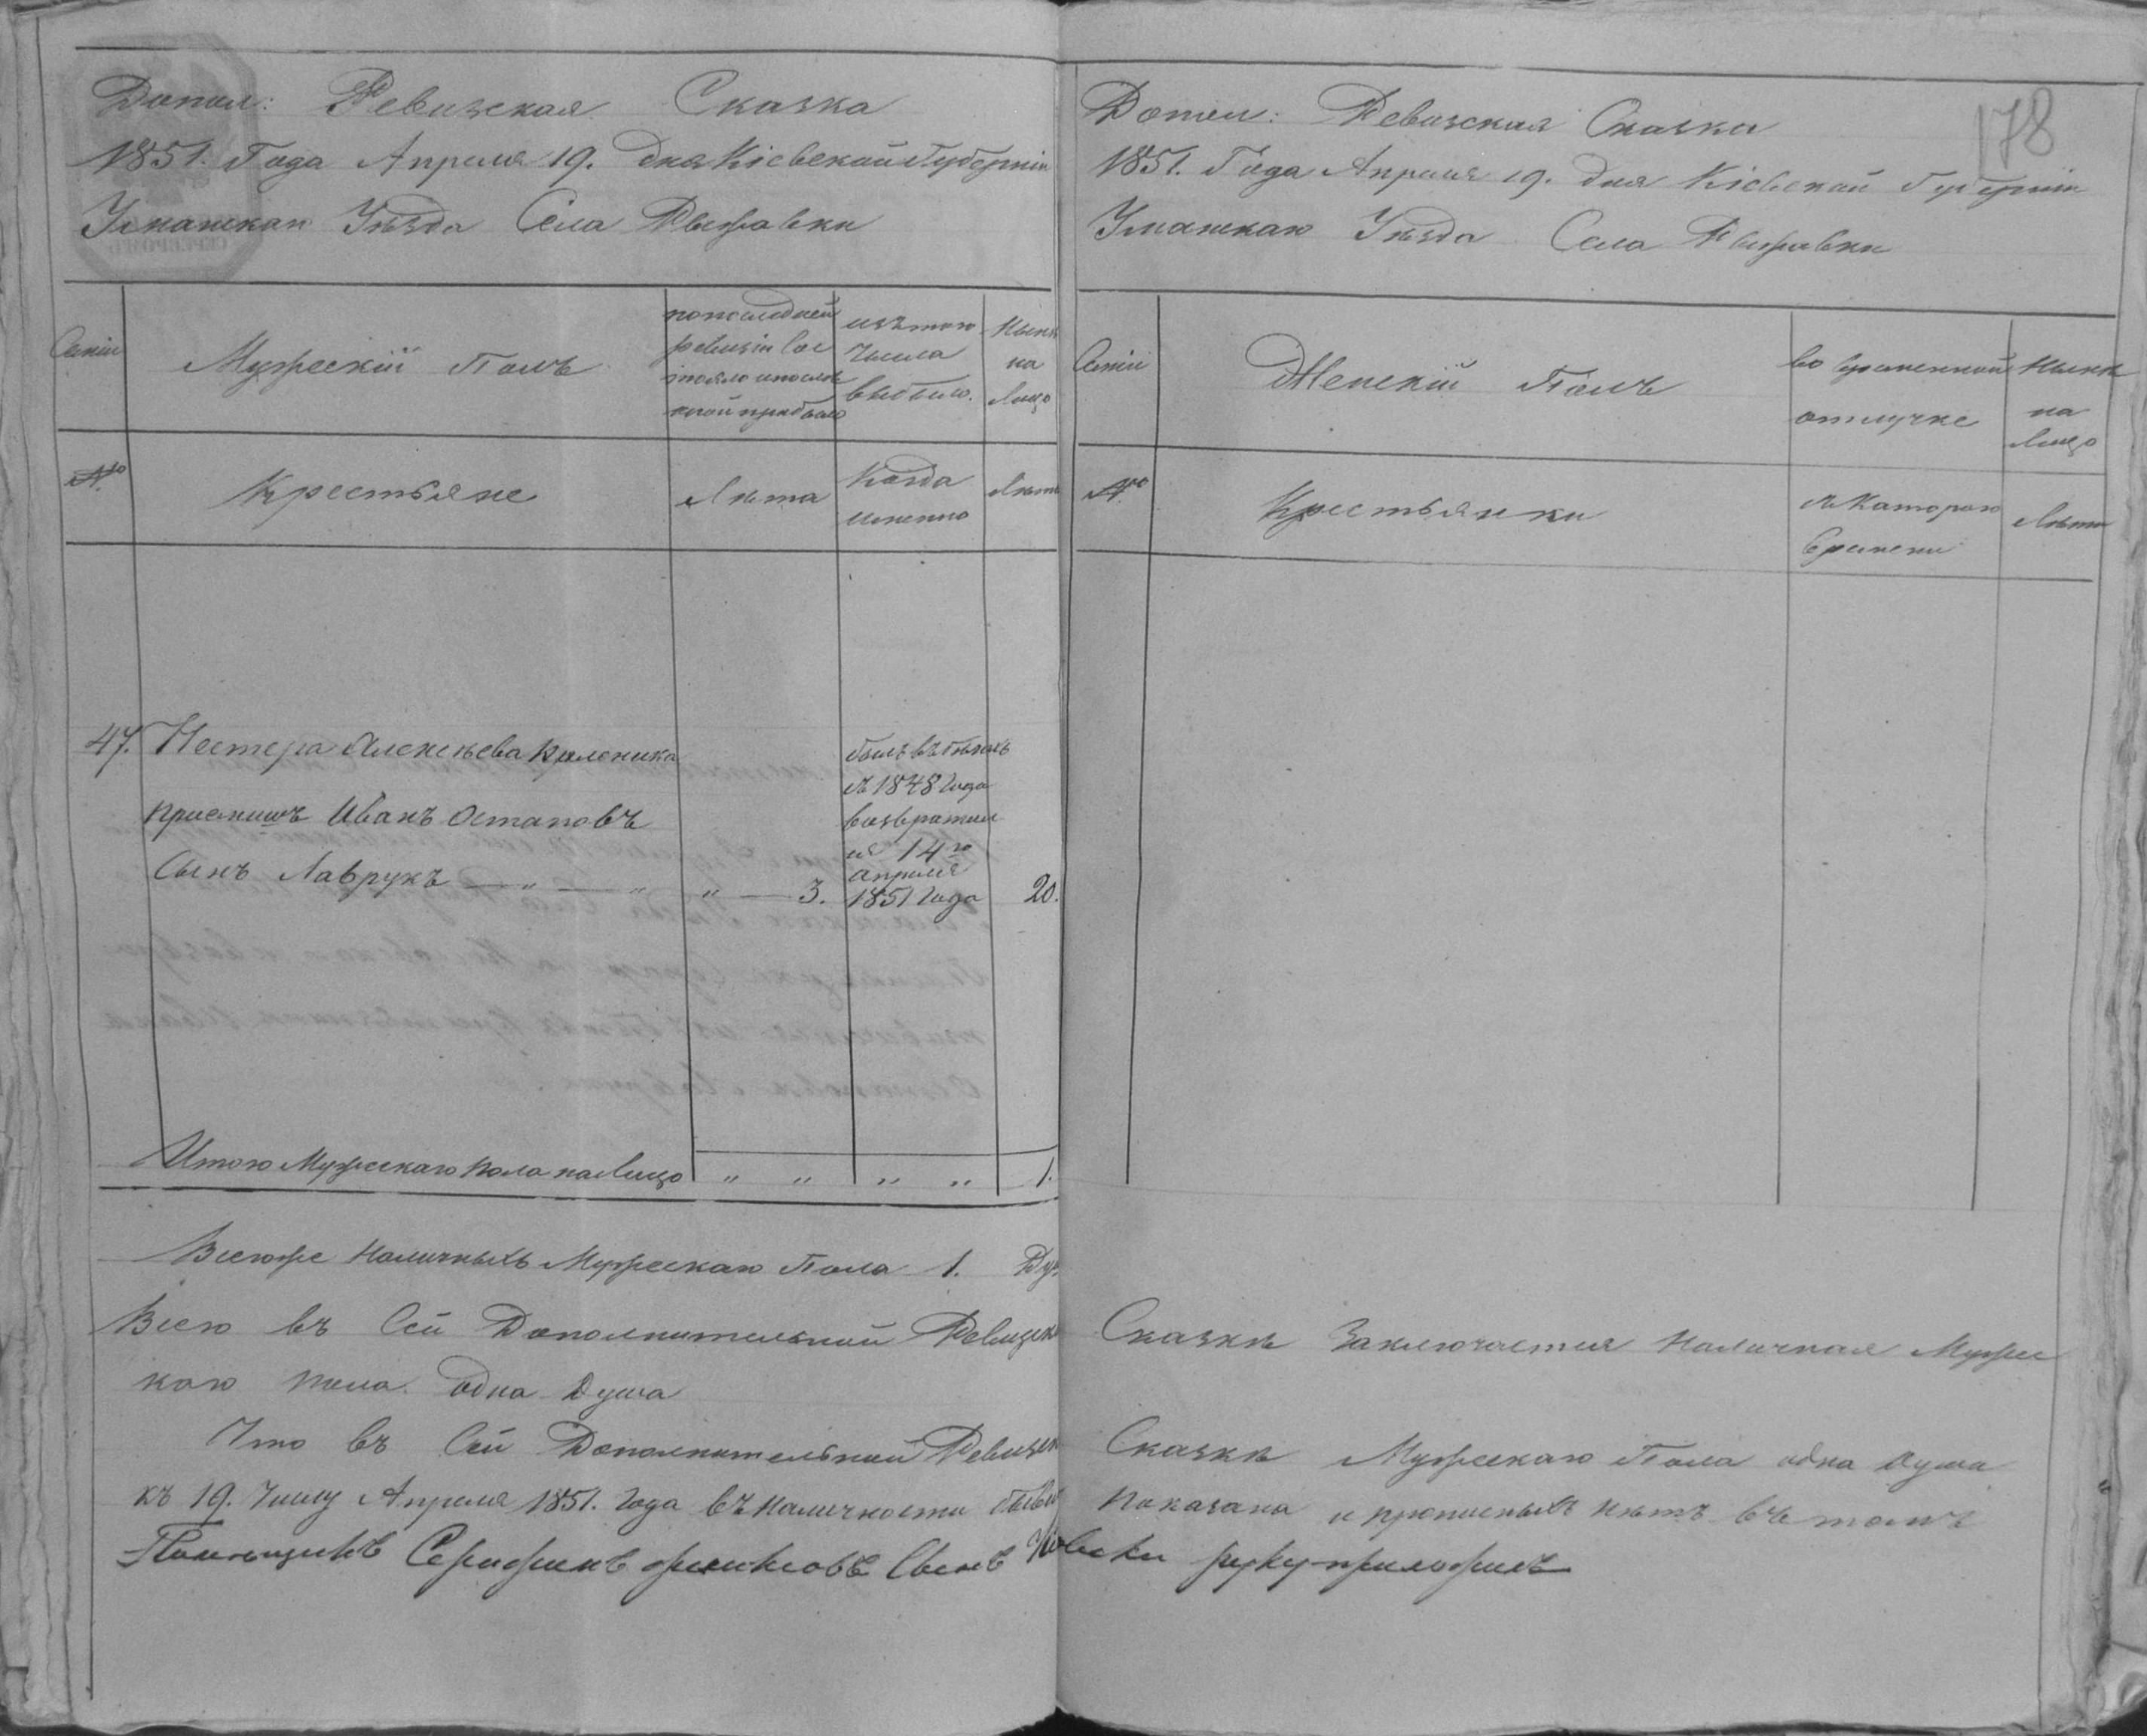 Допол: Ревизская Сказка
1851. Года Апреля 19. дня Кіевской Губерніи
Уманскаго Уѣзда Села Рыжавки
Семіи
Мужескій Полъ
по последней
ревизіи сос
тояло и после
оной прибыло
изъ того
числа
выбыло.
Нынѣ
на
лицо
№
Крестьяне
Лѣта
Когда
именно
Лѣта
47. Нестера Алексѣева Коленика
пріемишъ Иванъ Остаповъ
Сынъ Лаврукъ — " — " " — 3.
былъ въ бѣгахъ
съ 1848 года
возвратил
ся 14го
апреля
1851 года
20.
Итого Мужескаго пола на лицо " " " " 1.
Всего же наличныхъ Мужескаго Пола 1.
Всего въ Сей Дополнительной Ревизск
каго пола одна душа
Что въ Сей Дополнительной Ревизск
къ 19. Числу Апреля 1851. года въ наличности
Помещикъ Серафинъ Сынъ
178
Допол: Ревизская Сказка
1851. Года Апреля 19. дня Кіевской Губерніи
Уманскаго Уѣзда Села Рыжавки
Семіи
Женскій Полъ
во временной
отлучке
Нынѣ
на
лицо
№
Крестьянки
съ Котораго
времени
Лѣта
Сказкѣ Заключается наличная Мужес
Сказкѣ Мужескаго Пола одна душа
показана и прописныхъ нѣтъ въ томъ
руку приложилъ